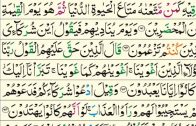 قِيهِ كَمَن مَّتَّعْنَٰهُ مَتَٰعَ ٱلْحَيَوٰةِ ٱلدُّنْيَا ثُمَّ هُوَ يَوْمَ ٱلْقِيَٰمَةِ
ٱلْمُحْضَرِينَ وَيَوْمَ يُنَادِيهِمْ فَيَقُولُ أَيْنَ شُرَكَآءِيَ
كُنتُمْ تَزْعُمُونَ قَالَ ٱلَّذِينَ حَقَّ عَلَيْهِمُ ٱلْقَوْلُ رَبَّنَا
ٱلَّذِينَ أَغْوَيْنَآ أَغْوَيْنَٰهُمْ كَمَا غَوَيْنَا تَبَرَّأْنَآ إِلَيْكَ
إِيَّانَا يَعْبُدُونَ وَقِيلَ ٱدْعُوا۟ شُرَكَآءَكُمْ فَدَعَوْهُمْ
يَسْتَجِيبُوا۟ لَهُمْ وَرَأَوُا۟ ٱلْعَذَابَ لَوْ أَنَّهُمْ كَانُوا۟ يَهْتَدُونَ